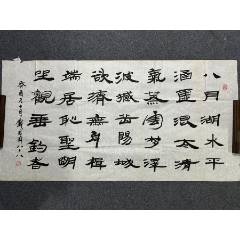 八月湖水平
涵虛混太清
氣蒸雲夢澤
波撼岳陽城
欲濟無舟楫
端居恥聖明
坐觀垂釣者